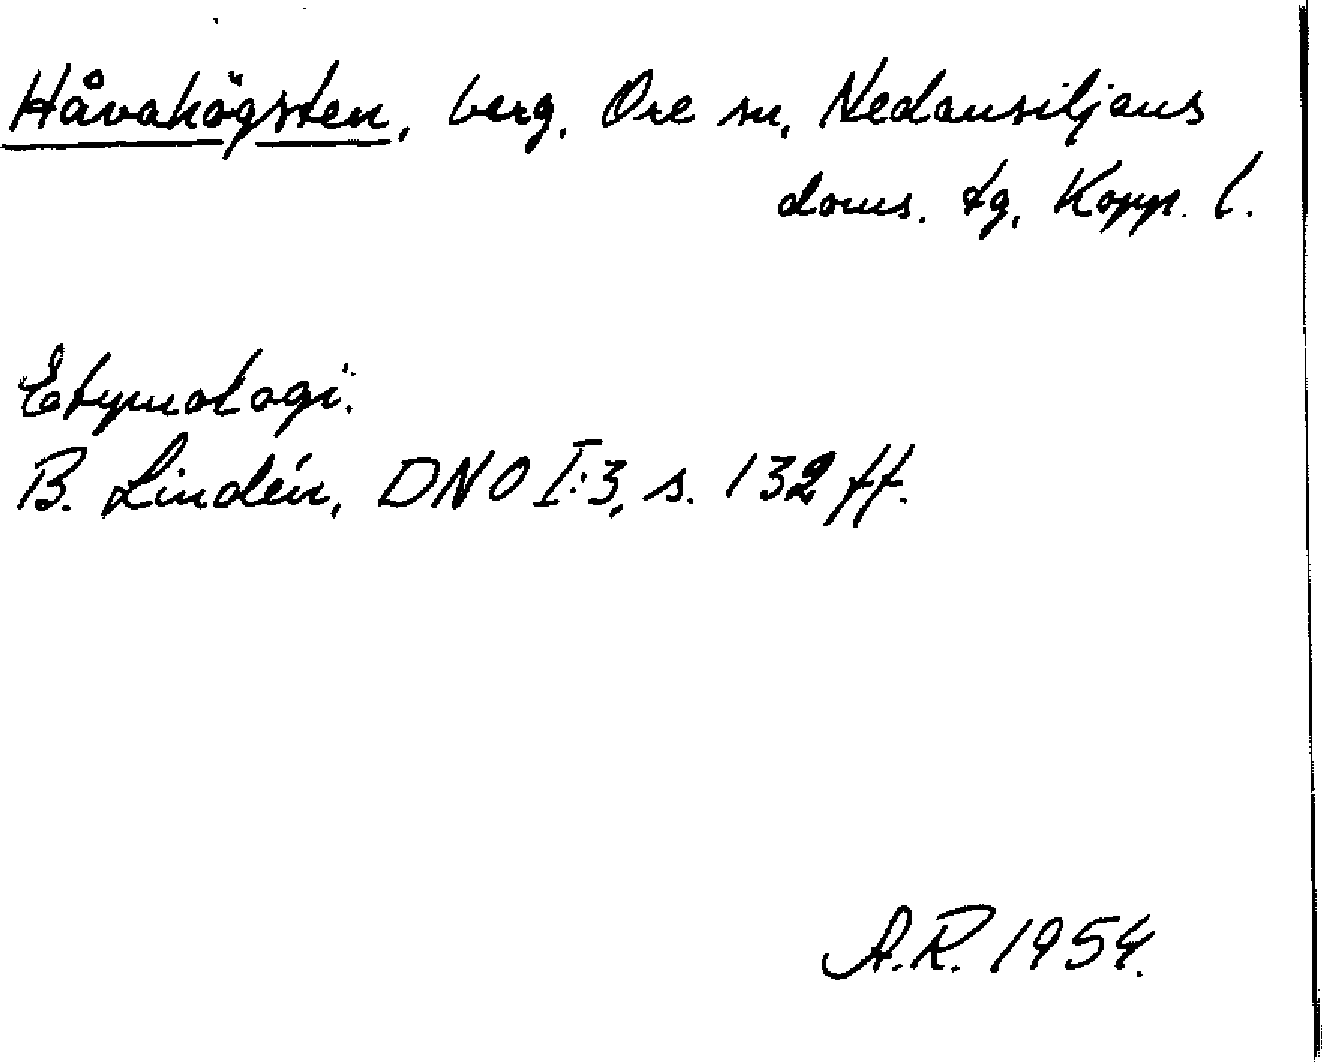 Håvahögsten, berg, Ore sn, Nedansiljans
doms. tg, Kopp. l.
Etymologi:
B. Lindén, DNO I:3, s. 132 ff.
A.R. 1954.